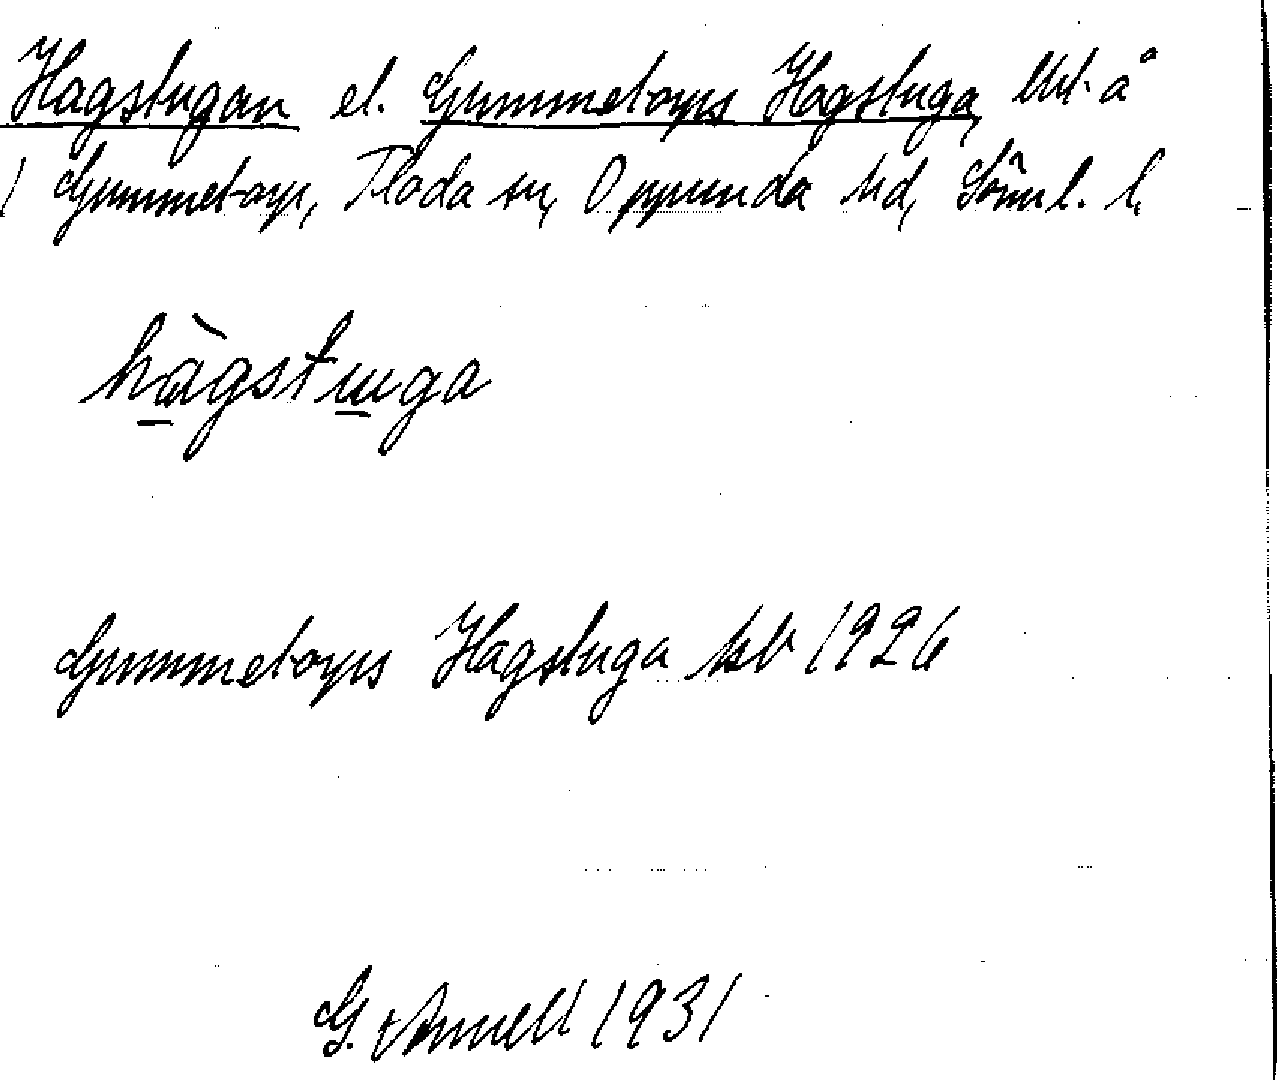 Hagstugan el. Gummetorps Hagstuga, lht. å
1 Gummetorp, Floda sn, Oppunda hd, Söml. l.
hàgstuga
Gummetorps Hagstuga kb 1926
G. Annell 1931